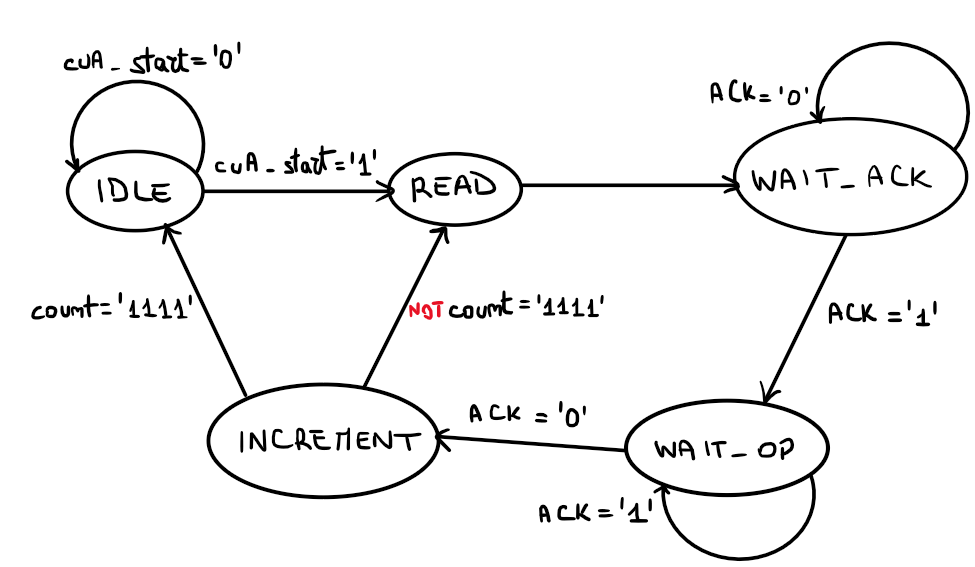 cuA_start='0'
ACK='0'
IDLE
cuA_start='1'
READ
WAIT_ACK
count='1111'
NOT count='1111'
ACK='1'
INCREMENT
ACK='0'
WAIT_OP
ACK='1'